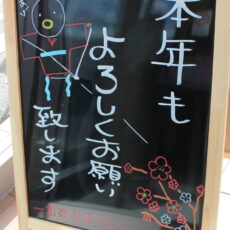 本年も
よろしくお願い
致します